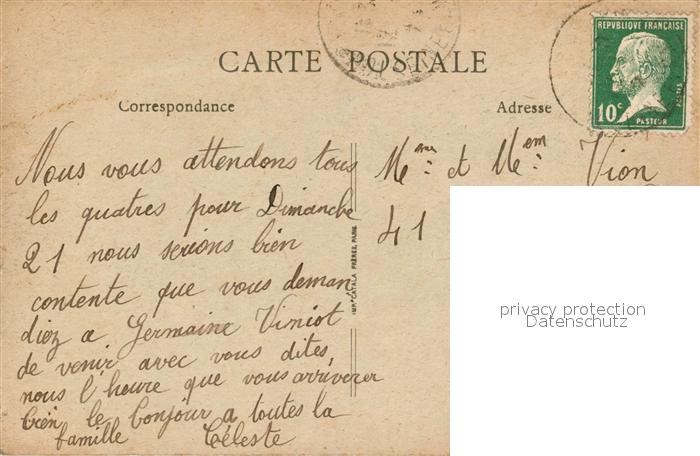 CARTE POSTALE
Correspondance
Adresse
REPVBLIQUE FRANÇAISE
10c
POSTES
PASTEUR
Nous vous attendons tous
les quatres pour Dimanche
21 nous serions bien
contente que vous deman
diez a Germaine Viniot
de venir avec vous dites,
nous l'heure que vous arriverer
bien le bonjour a toutes la
famille Céleste
IMP. CATALA FRÈRES, PARIS
Mme et Mem Vion
41
privacy protection
Datenschutz